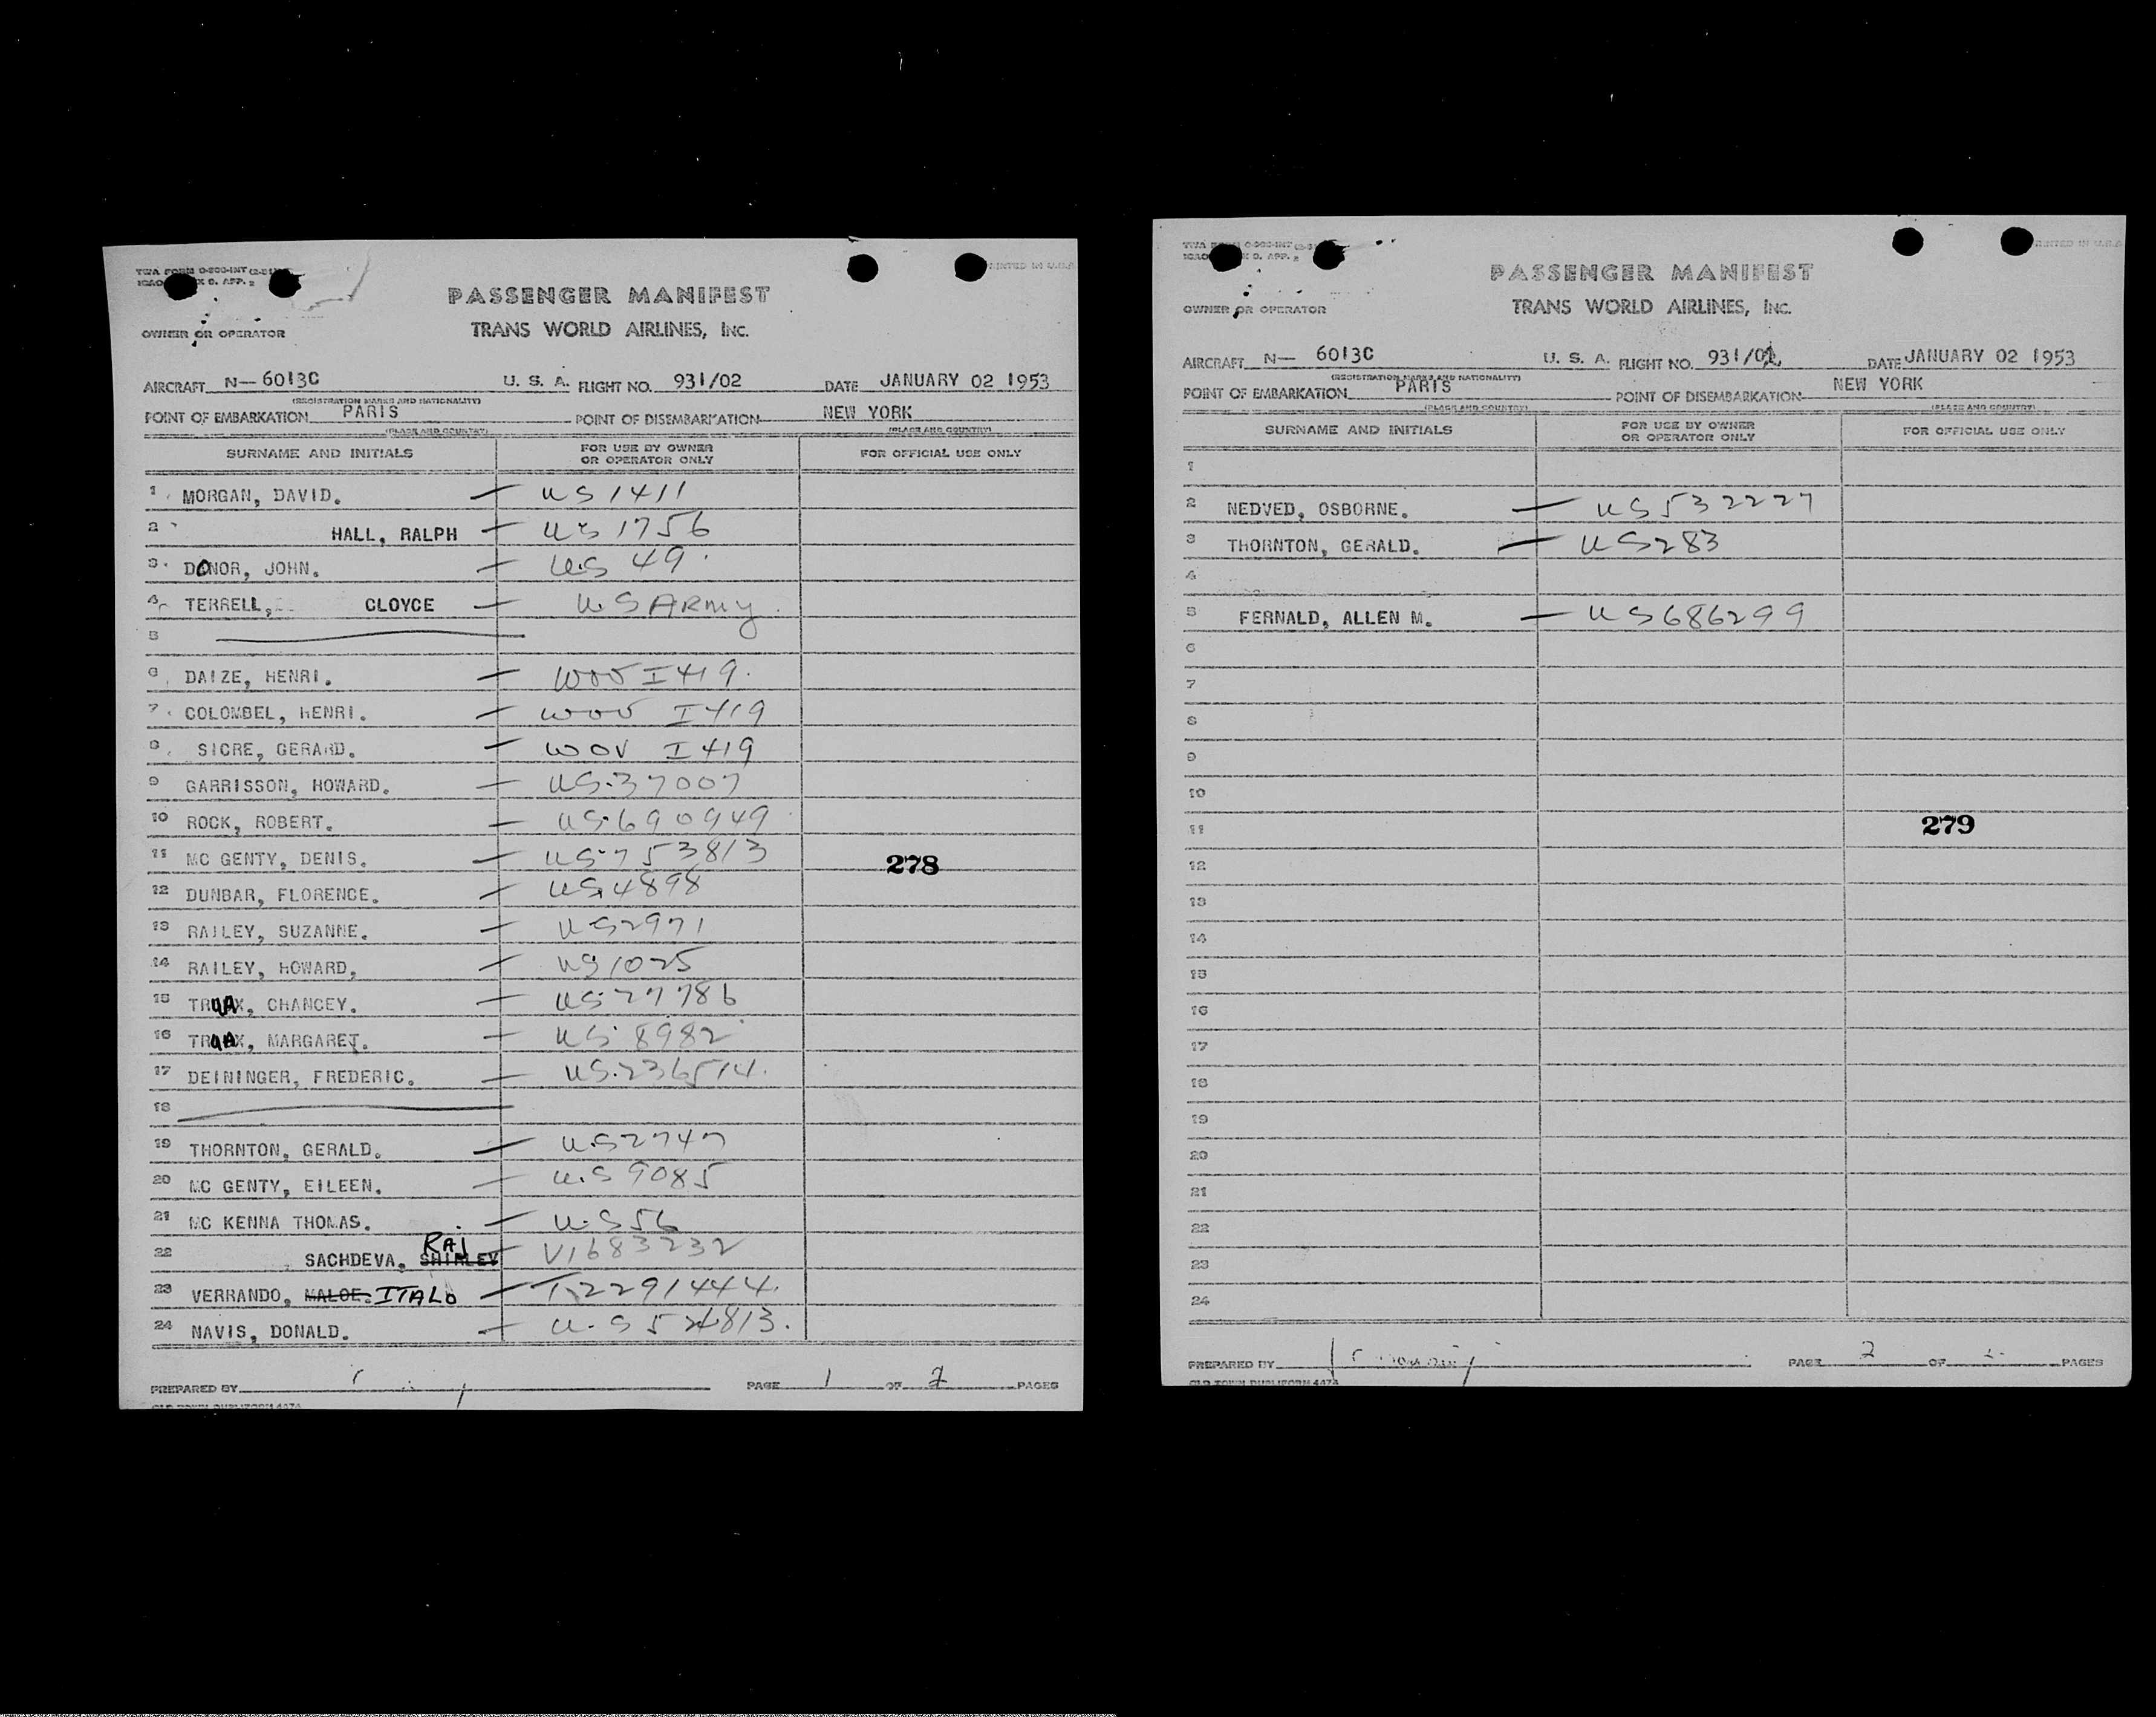 TWA FORM O-200-INT
PRINTED IN U.S.A.
PASSENGER MANIFEST
OWNER OR OPERATOR
TRANS WORLD AIRLINES, INC.
AIRCRAFT N- 6013C U. S. A. FLIGHT NO. 931/02 DATE JANUARY 02 1953
(REGISTRATION MARKS AND NATIONALITY)
POINT OF EMBARKATION PARIS POINT OF DISEMBARKATION NEW YORK
(PLACE AND COUNTRY) (PLACE AND COUNTRY)
SURNAME AND INITIALS FOR USE BY OWNER OR OPERATOR ONLY FOR OFFICIAL USE ONLY
1 MORGAN, DAVID. — US 1411
2 HALL, RALPH — US 1756
3 DONOR, JOHN. — US 49
4 TERRELL, CLOYCE — U. S ARMY
5
6 DAIZE, HENRI. — WOV I 419.
7 COLOMBEL, HENRI. — WOV I 419
8 SICRE, GERARD. — WOV I 419
9 GARRISSON, HOWARD. — US.37007
10 ROCK, ROBERT. — US.690949
11 MC GENTY, DENIS. — US.753813 278
12 DUNBAR, FLORENCE. — US.4898
13 RAILEY, SUZANNE. — US2971
14 RAILEY, HOWARD, — US1025
15 TRUAX, CHANCEY. — US27786
16 TRUAX, MARGARET. — US 8982
17 DEININGER, FREDERIC. — US.236514.
18
19 THORNTON, GERALD. — U.S2747
20 MC GENTY, EILEEN. — U.S 9085
21 MC KENNA THOMAS. — U.S56
22 SACHDEVA, SHIRLEY RAJ — V1683232
23 VERRANDO, MALOE. ITALO — T.2291444.
24 NAVIS, DONALD. — U.S 524813.
PREPARED BY PAGE 1 OF 2 PAGES
TWA O-200-INT
PRINTED IN U.S.A.
PASSENGER MANIFEST
OWNER OR OPERATOR
TRANS WORLD AIRLINES, INC.
AIRCRAFT N- 6013C U. S. A. FLIGHT NO. 931/02 DATE JANUARY 02 1953
(REGISTRATION MARKS AND NATIONALITY)
POINT OF EMBARKATION PARIS POINT OF DISEMBARKATION NEW YORK
(PLACE AND COUNTRY) (PLACE AND COUNTRY)
SURNAME AND INITIALS FOR USE BY OWNER OR OPERATOR ONLY FOR OFFICIAL USE ONLY
1
2 NEDVED, OSBORNE. — US532227
3 THORNTON, GERALD. — US283
4
5 FERNALD, ALLEN M. — US686299
6
7
8
9
10
11 279
12
13
14
15
16
17
18
19
20
21
22
23
24
PREPARED BY PAGE 2 OF 2 PAGES